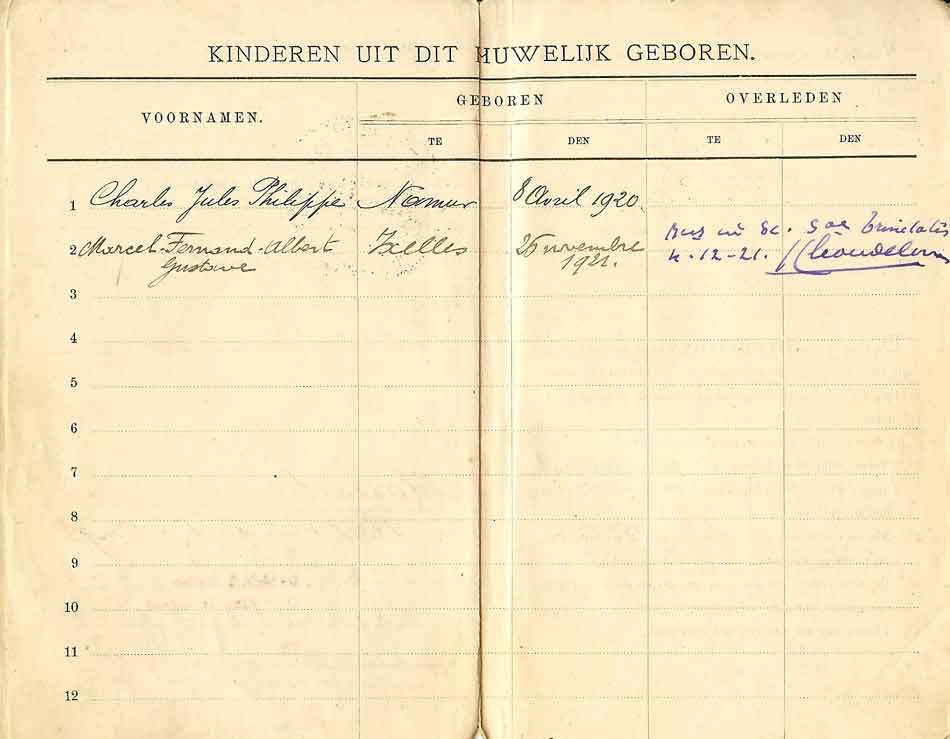 KINDEREN UIT DIT HUWELIJK GEBOREN.
VOORNAMEN. GEBOREN OVERLEDEN
TE DEN TE DEN
1 Charles Jules Philippe Namur 8 Avril 1920.
2 Marcel-Fernand-Albert Ixelles 26 novembre
Gustave 1921. 4-12-21.
3
4
5
6
7
8
9
10
11
12